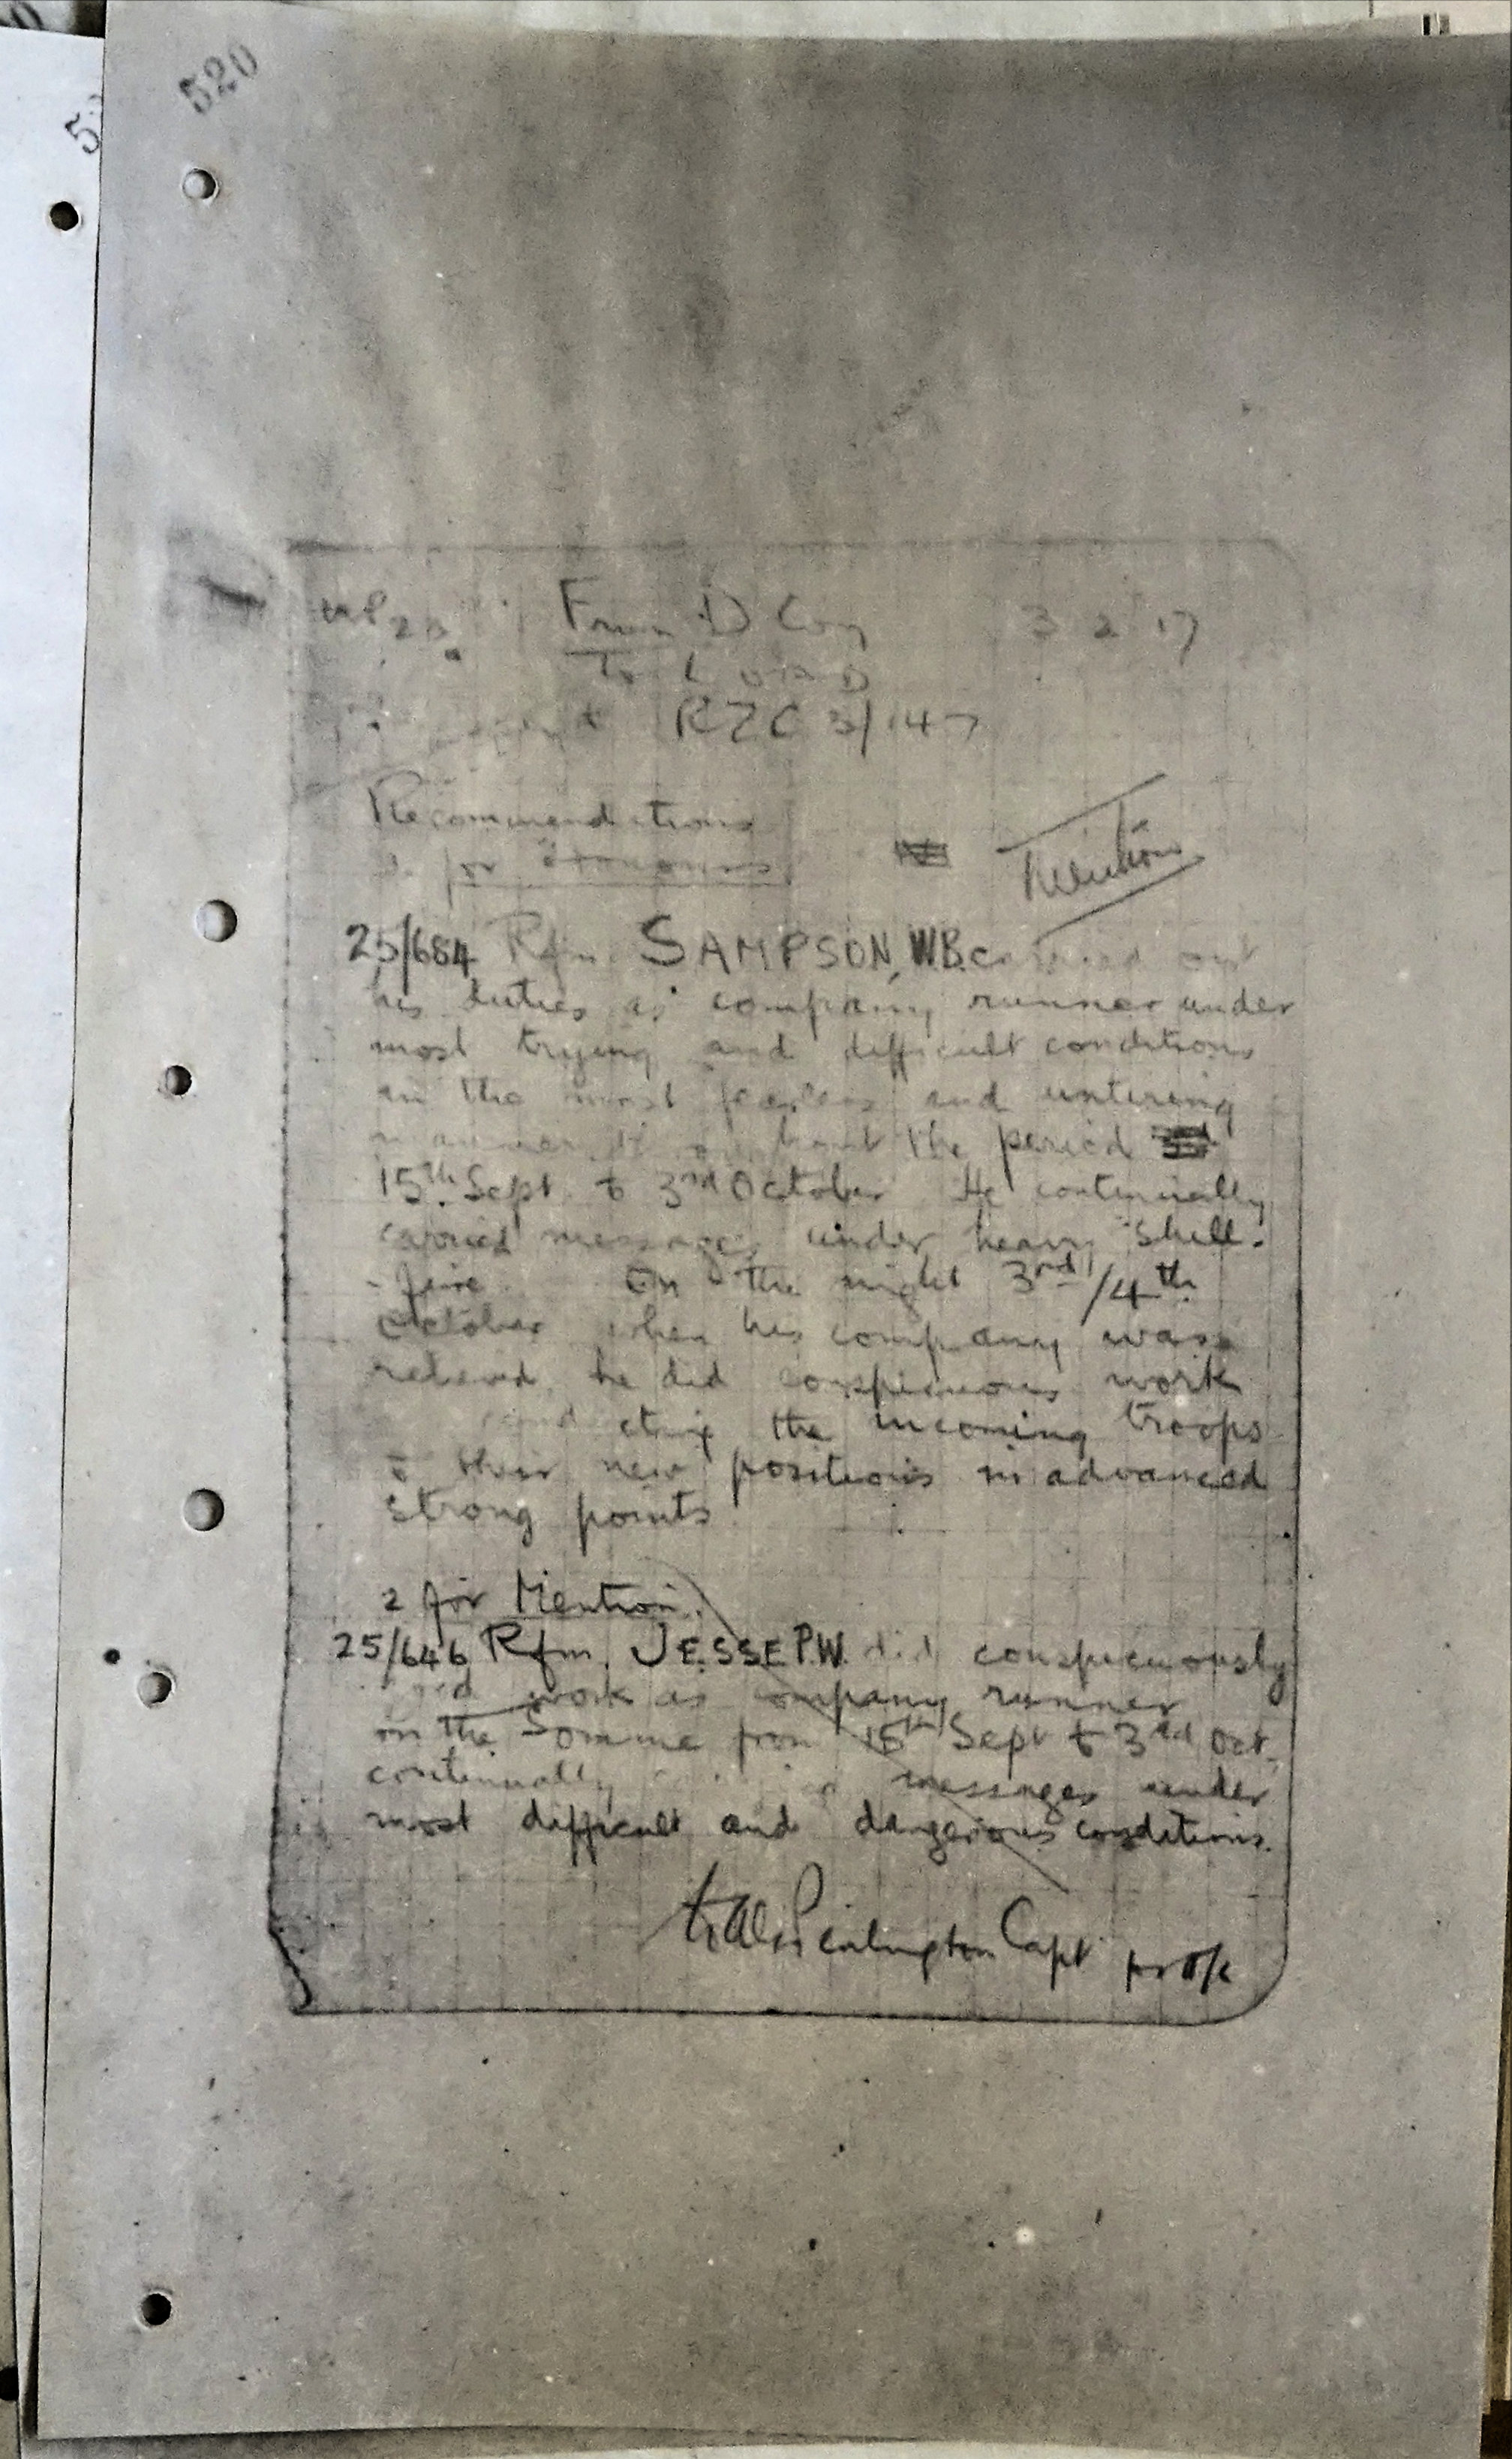 520
From D Coy 3 2 17
To
RZC 3/147
Recommendations
for Honours
Mention
25/684 Rfm. SAMPSON, W.B. carried out
his duties as company runner under
most trying and difficult conditions
in the most fearless and untiring
manner throughout the period
15th Sept. to 3rd October He continually
carried messages under heavy shell-
-fire On the night 3rd/4th
October when his company was
relieved, he did conspicuous work
conducting the incoming troops
to their new positions in advanced
strong points
2 for Mention.
25/646 Rfm. JESSE P.W. did conspicuously
good work as company runner
on the Somme from 15th Sept to 3rd Oct.
continually messages under
most difficult and dangerous conditions.
Capt